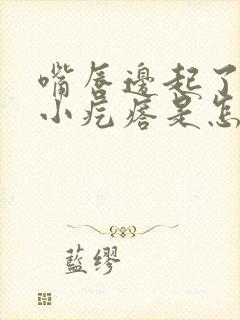 嘴唇边起了
小疙瘩是怎
藍缪